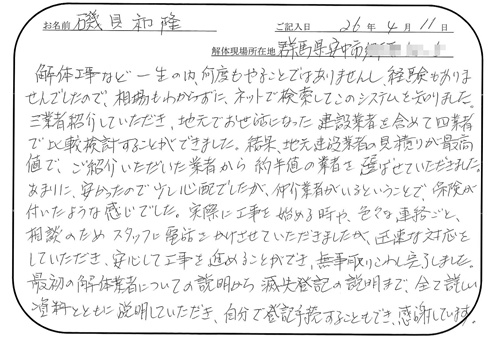 お名前 磯貝和隆 ご記入日 26年4月11日
解体現場所在地 群馬県安中市
解体工事など一生の内、何度もやることではありませんし、経験もありま
せんでしたので、相場もわからずに、ネットで検索してこのシステムを知りました。
三業者紹介していただき、地元でお世話になった建設業者を含めて四業者
で比較検討することができました。結果、地元建設業者の見積りが最高
値で、ご紹介いただいた業者から約半値の業者を選ばせていただきました。
あまりに、安かったので少し心配でしたが、仲介業者がいるということで、保険が
付いたような感じでした。実際に工事を始める時や、色々な連絡ごと、
相談のためスタッフに電話をかけさせていただきましたが、迅速な対応を
していただき、安心して工事を進めることができ、無事取りこわし完了しました。
最初の解体業者についての説明から滅失登記の説明まで、全て詳しい
資料とともに説明していただき、自分で登記手続することもでき、感謝しています。